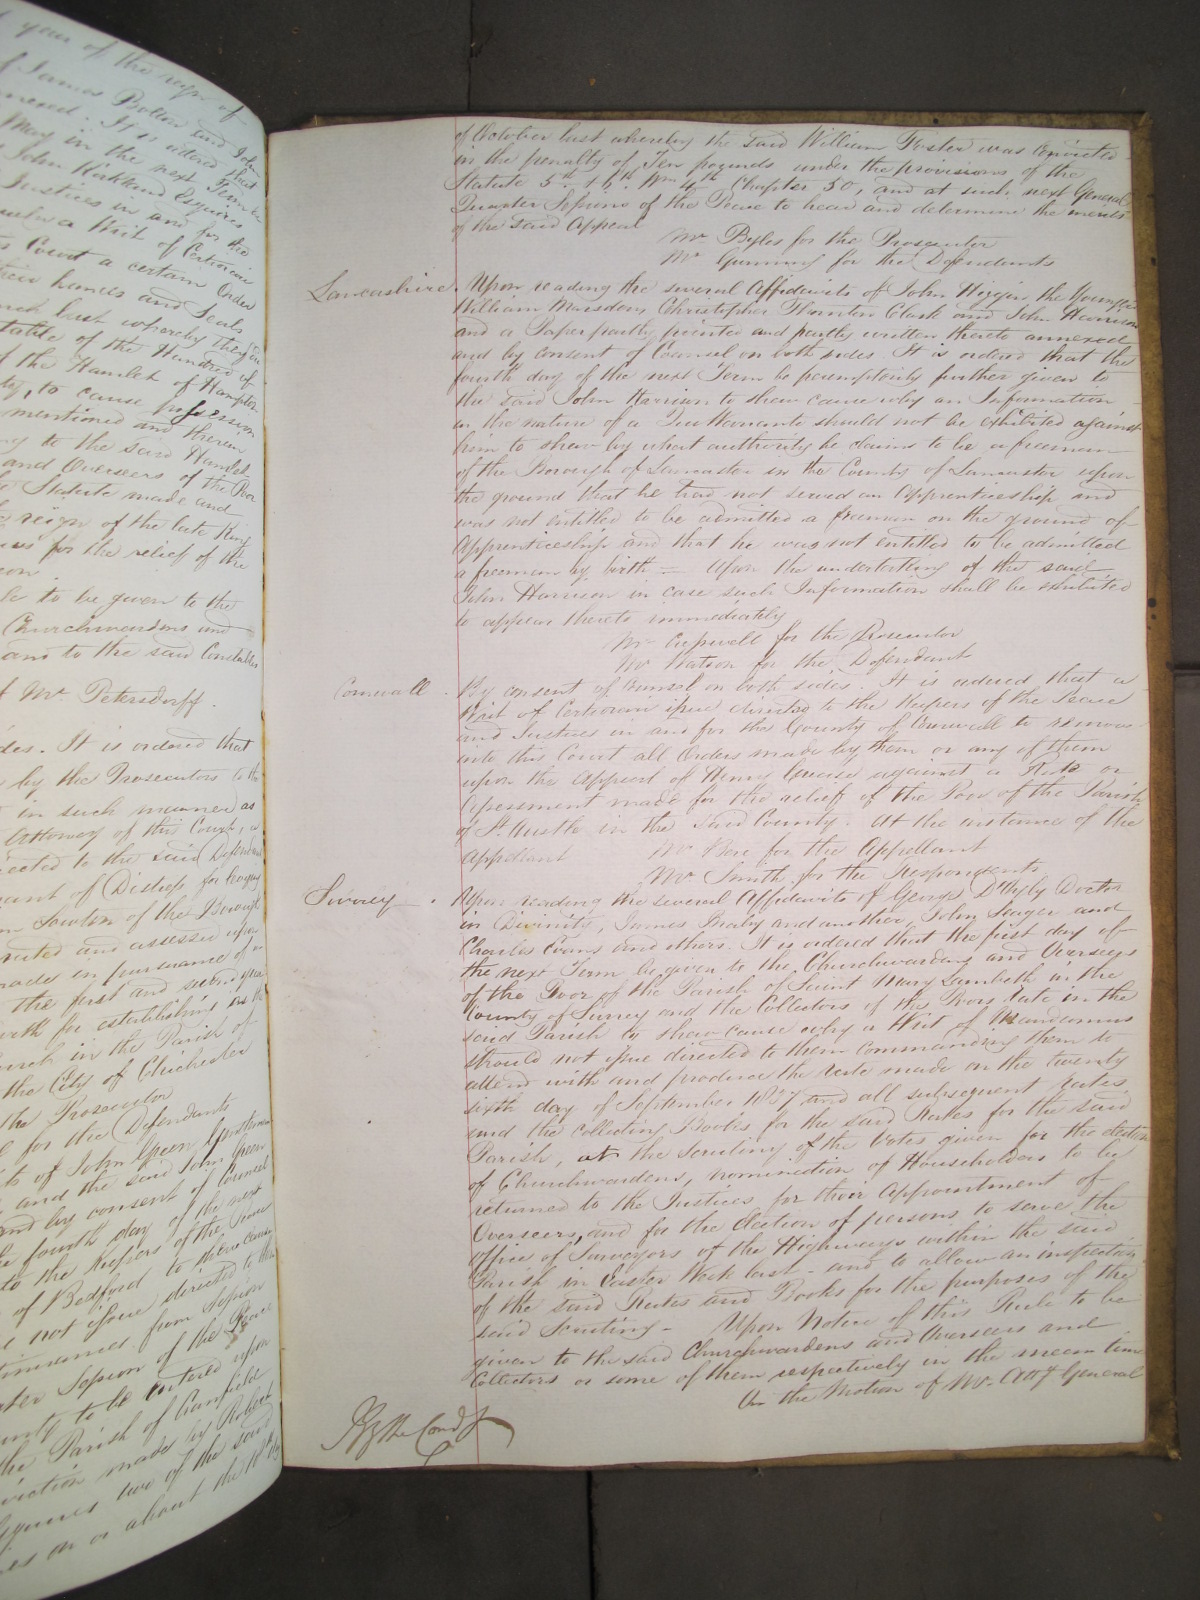 year of the reign of
of James Bolton and John
annexed. It is ordered that
May in the next Term be
John Kirkland Esquire
Justices in and for the
a Writ of Certiorari
Court a certain Order
their hands and Seals
last whereby they
Statute of the Hundred of
of the Hamlet of Hampton
to cause possession
mentioned and therein
to the said Hamlet
and Overseers of the Poor
Statute made and
reign of the late King
for the relief of the
to be given to the
Churchwardens and
and to the said Constables
Mr. Petersdorff.
sides. It is ordered that
by the Prosecutors to the
in such manner as
Attorney of this Court,
directed to the said Defendant
of Distress for levying
of the Borough
rated and assessed upon
made in pursuance of
the first and second year
for establishing
Church in the Parish of
the City of Chichester
the Prosecutor
for the Defendants
of John Green
and the said John Green
and by consent of Counsel
fourth day of the next
to the Keepers of the Peace
of Bedford to shew cause
not issue directed to them
from Session
Session of the Peace
to be entered upon
the Parish of Cranfield
conviction made by Robert
Esquires two of the said
on or about the 18th
of October last whereby the said William Foster was convicted
in the penalty of Ten pounds under the provisions of the
Statute 5th & 6th Wm 4th Chapter 50, and at such next General
Quarter Sessions of the Peace to hear and determine the merits
of the said Appeal
Mr. Byles for the Prosecutor
Mr. Gunning for the Defendants
Lancashire. Upon reading the several Affidavits of John Higgin the Younger
William Marsden, Christopher Thornton Clark and John Harrison
and a Paper partly printed and partly written thereto annexed
and by consent of Counsel on both sides. It is ordered that the
fourth day of the next Term be peremptorily further given to
the said John Harrison to shew cause why an Information
in the nature of a Quo Warranto should not be exhibited against
him to shew by what authority he claims to be a freeman
of the Borough of Lancaster in the County of Lancaster upon
the ground that he had not served an Apprenticeship and
was not entitled to be admitted a freeman on the ground of
Apprenticeship and that he was not entitled to be admitted
a freeman by birth — Upon the undertaking of the said
John Harrison in case such Information shall be exhibited
to appear thereto immediately
Mr. Cripwell for the Prosecutor
Mr Watson for the Defendant
Cornwall. By consent of Counsel on both sides. It is ordered that a
Writ of Certiorari issue directed to the Keepers of the Peace
and Justices in and for the County of Cornwall to remove
into this Court all Orders made by them or any of them
upon the Appeal of Henry Crease against a Rate or
Assessment made for the relief of the Poor of the Parish
of St. Austle in the said County. At the instance of the
Appellant Mr. Bere for the Appellant
Mr Smith for the Respondents
Surrey. Upon reading the several Affidavits of George D'Oyly Doctor
in Divinity, James Braby and another, John Seager and
Charles Evans and others. It is ordered that the first day of
the next Term be given to the Churchwardens and Overseers
of the Poor of the Parish of Saint Mary Lambeth in the
County of Surrey and the Collectors of the Poors rate in the
said Parish to shew cause why a Writ of Mandamus
should not issue directed to them commanding them to
attend with and produce the rate made on the twenty
sixth day of September 1837 and all subsequent rates
and the collecting Books for the said Rates for the said
Parish, at the Scrutiny of the Votes given for the election
of Churchwardens, nomination of Householders to be
returned to the Justices for their Appointment of
Overseers, and for the Election of persons to serve the
Office of Surveyors of the Highways within the said
Parish in Easter Week last — and to allow an inspection
of the said Rates and Books for the purposes of the
said Scrutiny — Upon Notice of this Rule to be
given to the said Churchwardens and Overseers and
Collectors or some of them respectively in the mean time
On the Motion of Mr. Atty General
By the Court